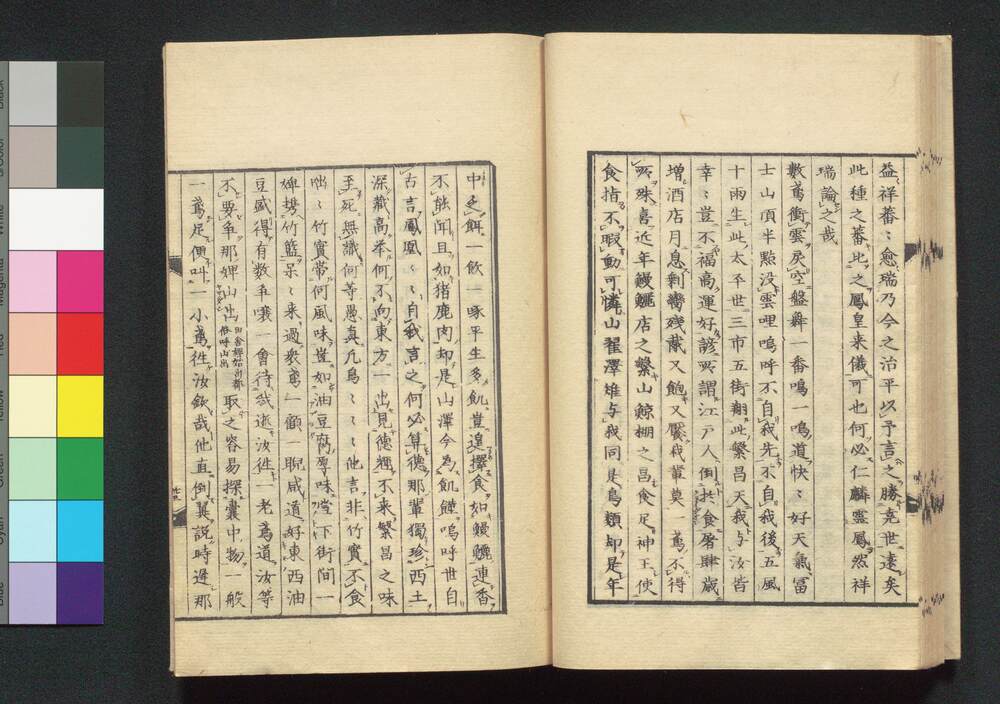 益祥蕃〻愈瑞乃今之治平以予言之勝堯世遠矣
此種之蕃此之鳳皇来儀可也何必仁麟靈鳳然祥
瑞論之哉
數鳶衝雲戻空盤舞一番鳴一鳴道快〻好天氣冨
士山頂半點没雲哩嗚呼不自我先不自我後五風
十雨生此太平世三市五街翔此繁昌天我与汝皆
幸〻豈不福高運好諺所謂江戸人倒拱食屠肆歳
増酒店月息剰臠残胾又飽又饜我輩莫一鳶不得
所殊喜近年鰻鱺店之繁山鯨棚之昌食足神王使
食指不暇動可憐山翟澤雄与我同是鳥類却是年
中乏餌一飲一啄平生多飢豈遑擇食如鰻鱺連香
不能聞且如猪鹿肉却是山澤今為飢饉嗚呼世自
古言鳳凰〻〻自我言之何必算德那輩獨珍西土
深藏高举何不向東方一出見德輝不来繁昌之味
至死無識何等愚真凡鳥〻〻〻他言非竹實不食
咄〻竹實帯何風味豈如油豆腐厚味當下街間一
婢携竹籃呆〻来過衆鳶一顧一睨咸道好東西油
豆盛得有数爭嚷一會待我逝汝徃一老鳶道汝等
不要爭那婢山出田舎輕始出都俗呼山出取之容易探囊中物一般
一鳶足便叫一小鳶徃汝欽哉他直倒翼説時遅那